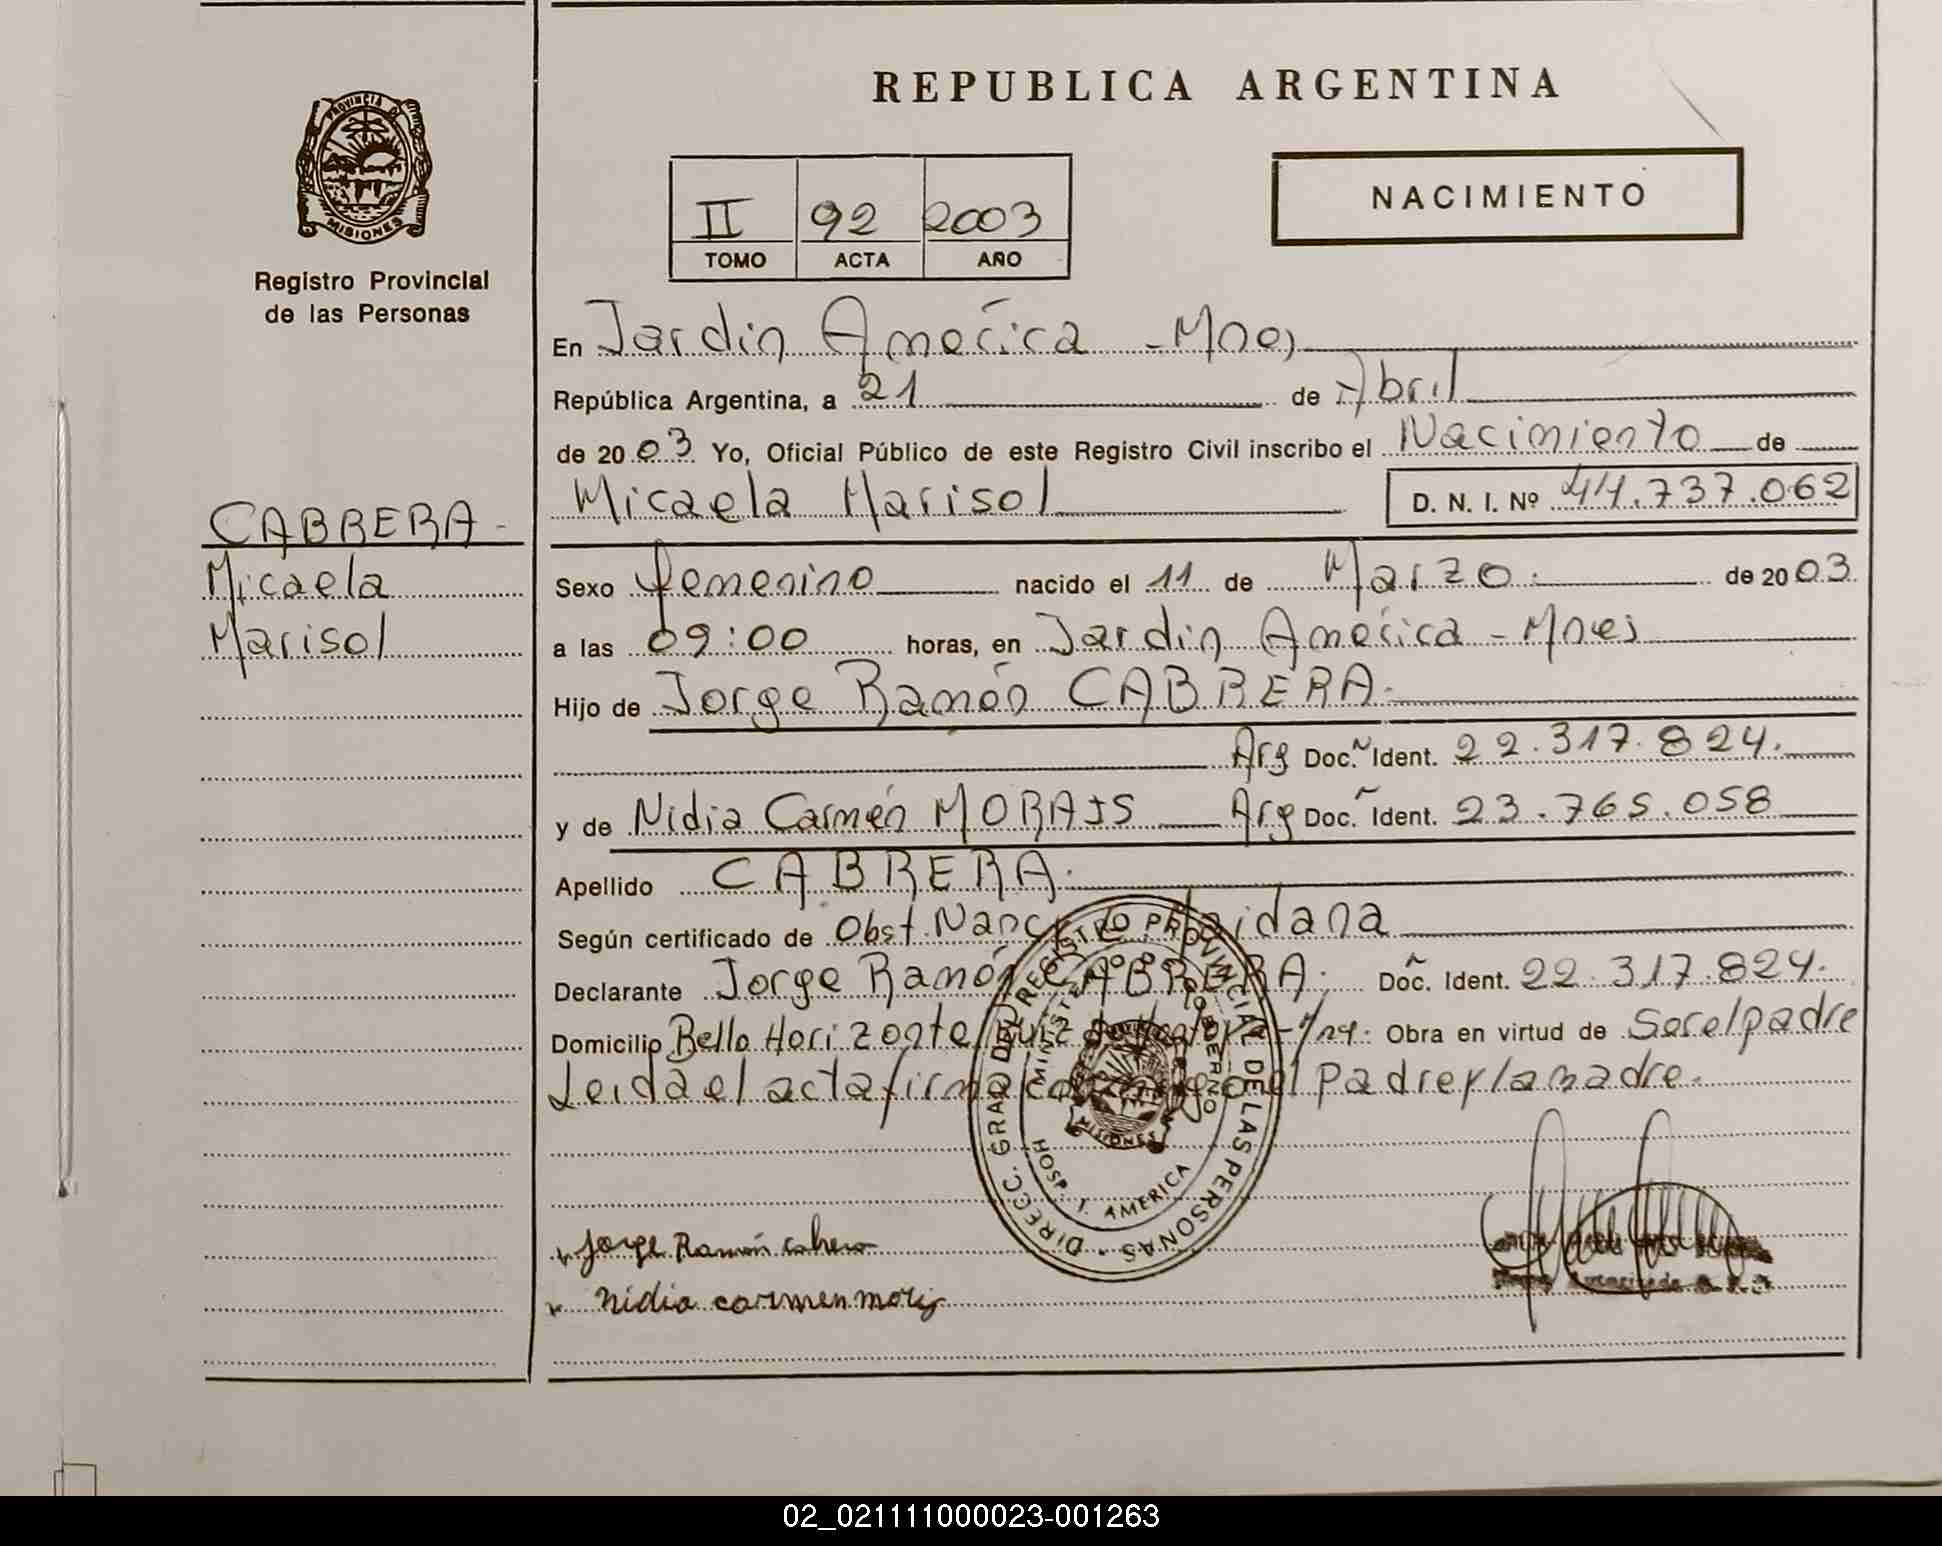 REPUBLICA ARGENTINA
PROVINCIA DE
MISIONES
Registro Provincial
de las Personas
II 92 2003
TOMO ACTA AÑO
NACIMIENTO
En Jardin América - Mnes
República Argentina, a 21 de Abril
de 2003 Yo, Oficial Público de este Registro Civil inscribo el Nacimiento de
Micaela Marisol D. N. I. Nº 44.737.062
CABRERA-
Micaela
Marisol
Sexo femenino nacido el 11 de Marzo. de 2003
a las 09:00 horas, en Jardin América - Mnes
Hijo de Jorge Ramón CABRERA.
Arg Doc. Ident. 22.317.824.
y de Nidia Carmén MORAIS Arg Doc. Ident. 23.765.058
Apellido CABRERA.
Según certificado de Obst. Nancy Maidana
Declarante Jorge Ramón CABRERA. Doc. Ident. 22.317.824.
Domicilio Bello Horizonte Ruiz de Montoya - Obra en virtud de Ser el padre
Leida el acta firma conmigo el padre y la madre.
DIRECC. GRAL DEL REGISTRO PROVINCIAL DE LAS PERSONAS
MINISTERIO DE GOBIERNO
MISIONES
HOSP. J. AMERICA
Jorge Ramón cabrera
nidia carmen
02_021111000023-001263